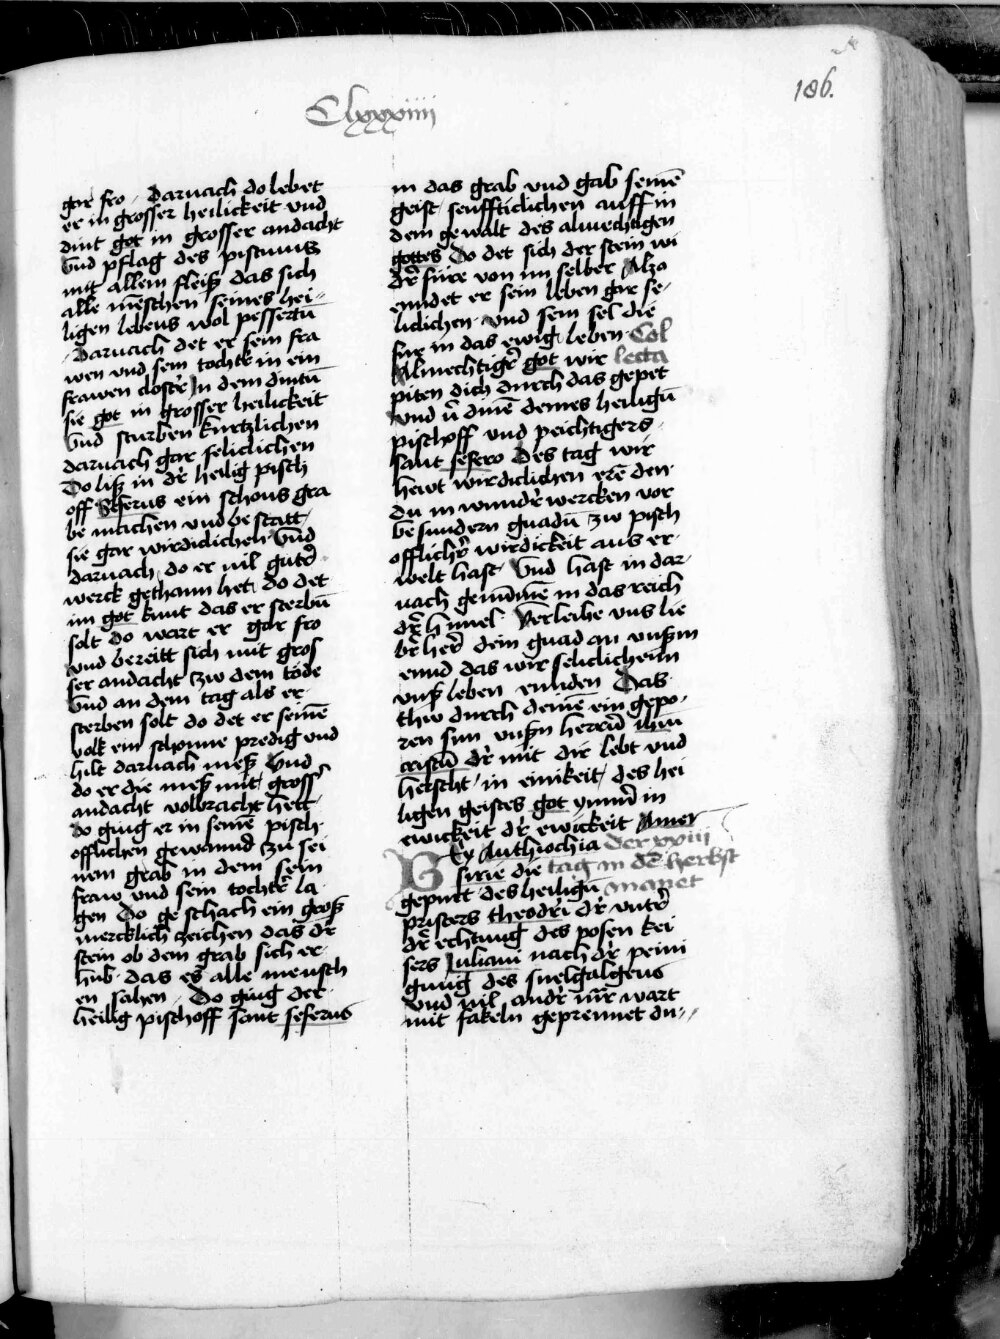 186.
Clxxxiiii
gar fro · Darnach do lebet
er in grosser heilickeit vnd
dint got in grosser andacht
Vnd pflag des pistums
mit allem fleiß das sich
alle mēschen seines hei-
ligen lebens wol pessertū
· Darnach det er sein fra
wen vnd sein tochtr̄ in ein
frawen clostr̄ In dem dintū
sie got in grosser heilickeit
Vnd sturben kurtzlichen
darnach gar seliclichen
Do liß in dr̄ heilig pisch
off seferus ein schons gra
be machen vnd bestatt
sie gar wirdiclichen Vnd
darnach do er vil gutr̄
werck gethann het do det
im got kunt das er sterbū
solt do wart er gar fro
vnd bereitt sich mit gros
ser andacht zw dem tode
Vnd an dem tag als er
sterben solt do det er seinē
volk ein schonne predig vnd
hilt darnach meß Vnd
do er die meß mit grossr̄
andacht volbracht hett
do ging er in seinē pisch
offlichen gewannd zu sei
nem grab in dem sein
fraw vnd sein tochtr̄ la
gen Do geschach ein groß
mercklich zeichen das dr̄
stein ob dem grab sich er
hub · das es alle mensch
en sahen · Do ging der
heilig pischoff sant seferus
in das grab vnd gab seinē
geist seuffticlichen auff in
dem gewalt des almechtigen
gottes Do det sich der stein wi
dr̄ fure von im selber Also
enndet er sein leben gar se-
liclichen vnd sein sel die
fur in das ewig leben Col
Almechtigr̄ got wir lecta
piten dich durch das gepet
vnd v̄dinē deines heiligū
pischoff vnd peichtigers
sant sefero Des tag wir
hewt wirdiclichen erē den
du in wundr̄wercken vor
besundern gnadū zw pisch
offlichr̄ wirdickeit aus er
welt hast Vnd hast in dar
nach genūmē in das reich
dr̄ himel Verleihe vns lie
br̄ herr̄ dein gnad an vnßm
ennd das wir seliclichenn
vnß leben ennden Das
thw durch deinē ein gepo-
ren sun vnßn herrnū ihm
cristū dr̄ mit dir lebt vnd
herscht in einikeit des hei
ligen geistes got ymmr̄ in
ewickeit dr̄ ewickeit Amen
BEy Anthiochia Der xxiii
sirie die tag in dē herbst
gepurt des heiligū manet
pristers theodri dr̄ vntr̄
dr̄ echtung des posen kei
sers Juliani nach dr̄ peini
gung des snelgalgens
vnd vil andr̄ mr̄ wart
mit fakeln geprennet du-